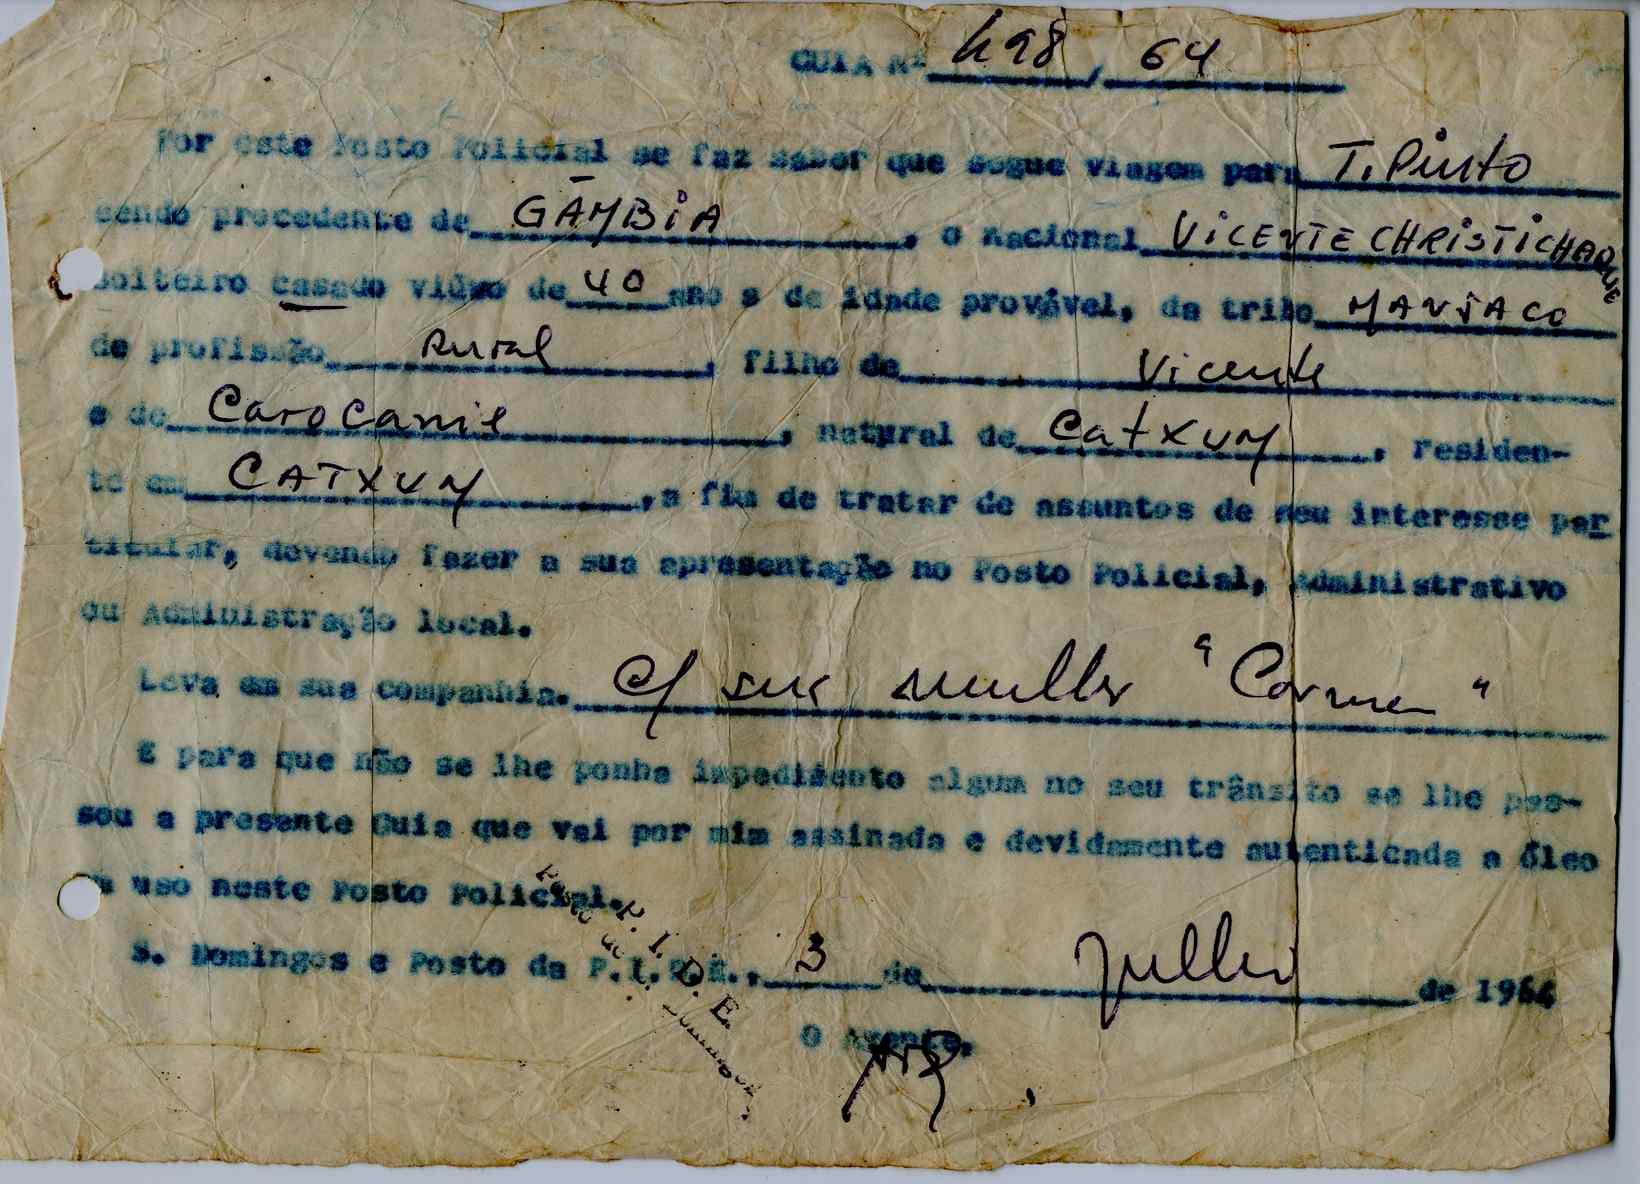 GUIA Nº 498 / 64
Por este Posto Policial se faz saber que segue viagem para T. Pinto
sendo procedente de GÂMBIA, o nacional VICENTE CHRISTICHAQUE
solteiro casado viúvo de 40 ano s de idade provável, da tribo MANJACO
de profissão rural, filho de Vicente
e de Carocanie, natural de CatXUM, residen-
te em CATXUM, a fim de tratar de assuntos de seu interesse par
ticular, devendo fazer a sua apresentação no Posto Policial, Administrativo
ou Administração local.
Leva em sua companhia. c/ sua mulher "Carmen"
E para que não se lhe ponha impedimento algum no seu trânsito se lhe pas-
sou a presente Guia que vai por mim assinada e devidamente autenticada a óleo
em uso neste Posto Policial.
S. Domingos e Posto da P.I.D.E., 3 de Julho de 1964
P. I. D. E.
Posto de
S. Domingos
O Agente,